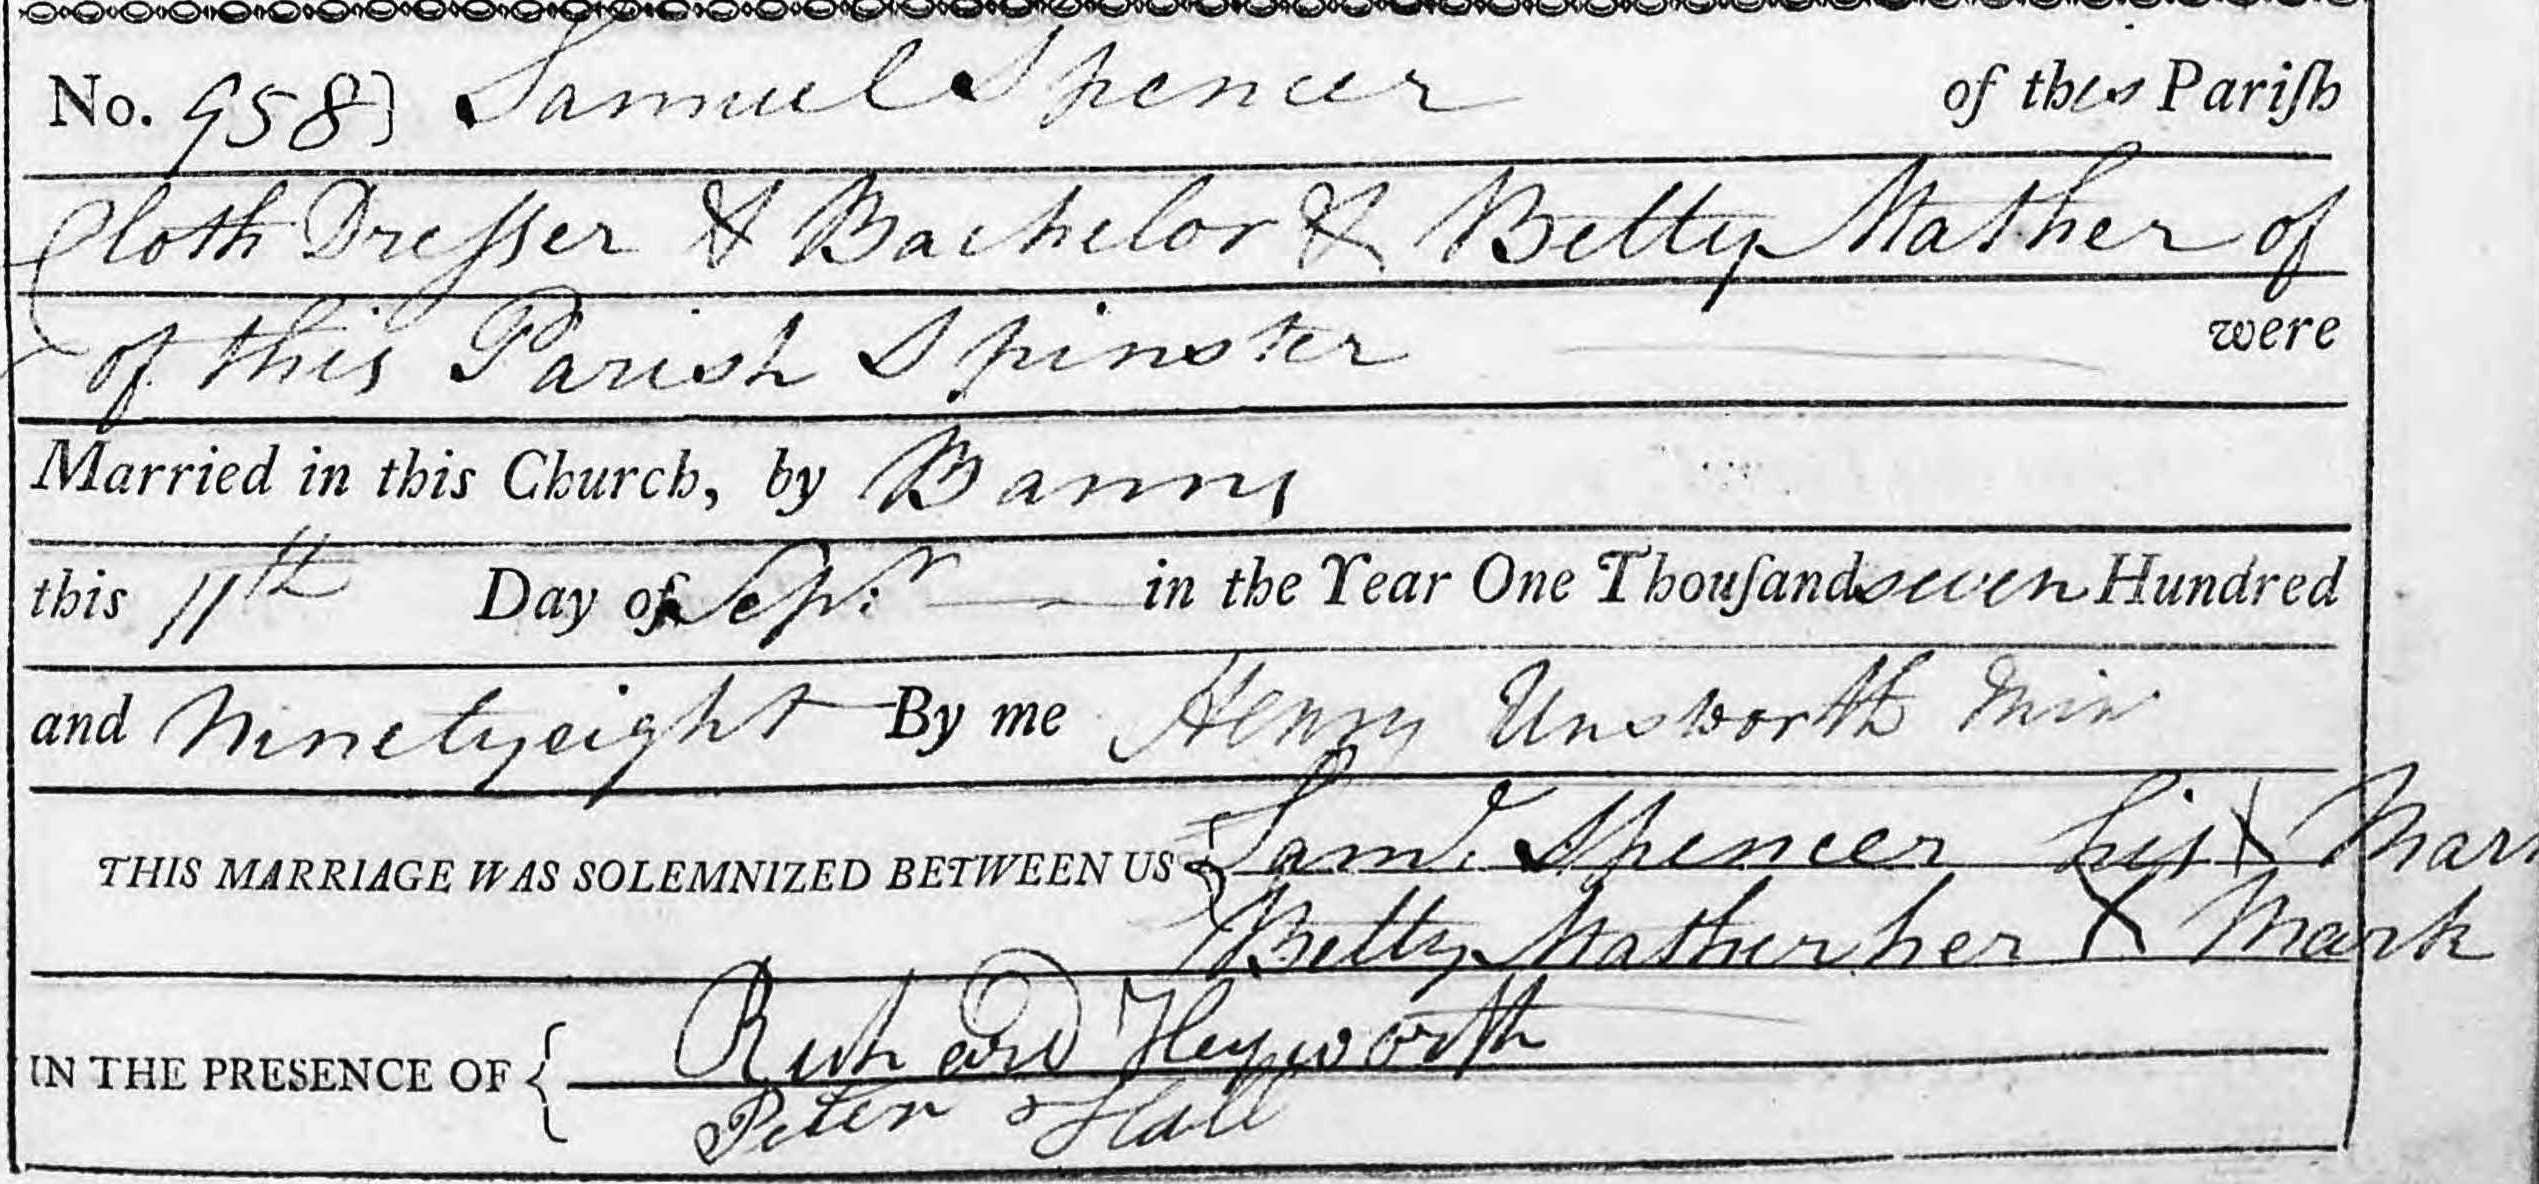 No. 958} Samuel Spencer of this Pariſh
Cloth Dreſser & Bachelor & Betty Mather of
of this Parish Spinster were
Married in this Church, by Banns
this 11th Day of Sepr: in the Year One Thouſand seven Hundred
and Ninetyeight By me Henry Unsworth Min
THIS MARRIAGE WAS SOLEMNIZED BETWEEN US { Saml. Spencer his X Mark
Betty Mather her X Mark
IN THE PRESENCE OF { Richard Heyworth
Peter Hall